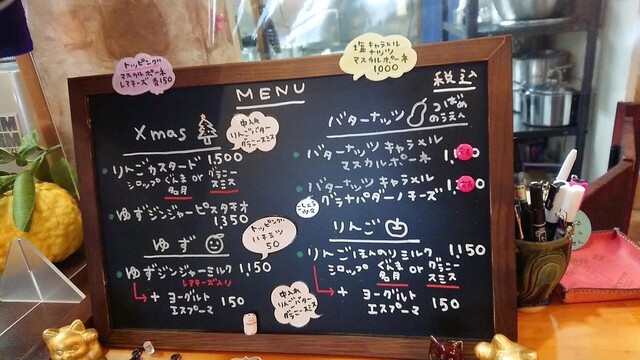 トッピング
マスカルポーネ
レアチーズ 各150
塩キャラメル
ナッツ
マスカルポーネ
1,000
MENU
税込
Xmas
中入れ
りんごバター
グラニースミス
りんごカスタード 1,500
シロップ ぐんま名月 or グラニースミス
ゆずジンジャーピスタチオ
1,350
ゆず
トッピング
ハチミツ
50
ゆずジンジャーミルク 1,150
レアチーズ入り
+ ヨーグルト
エスプーマ 150
中入れ
りんごバター
グラニースミス
バターナッツ つばめのうえん
バターナッツ キャラメル
マスカルポーネ
バターナッツ キャラメル
グラナパダーノチーズ
りんご
りんごほんのりミルク 1,150
シロップ ぐんま名月 or グラニースミス
+ ヨーグルト
エスプーマ 150